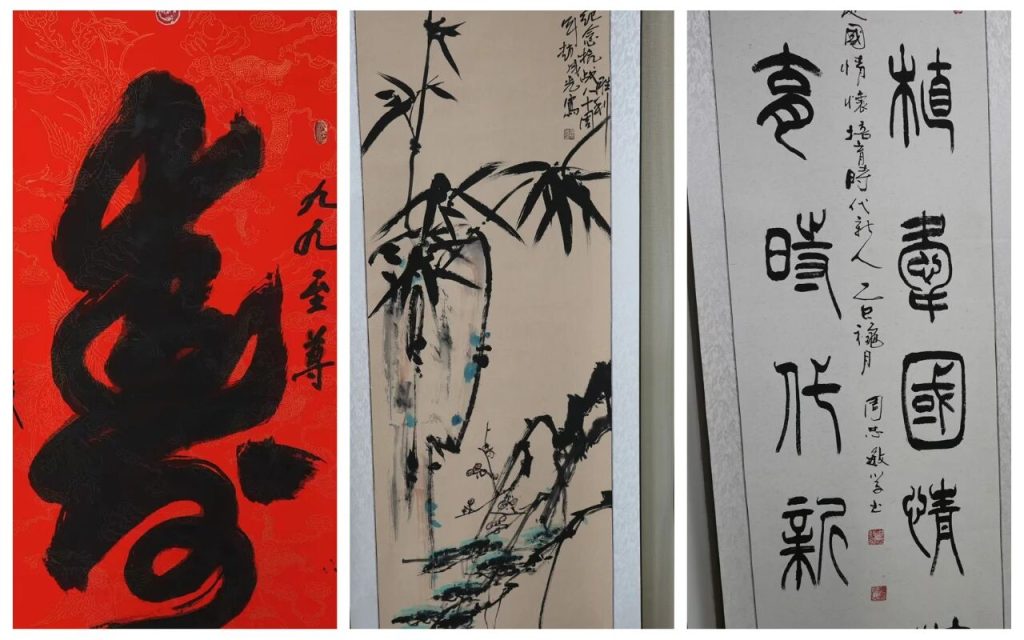 壽
九九至尊
纪念抗战八十周
胜利
植愛國情
國情懷培育時代新人 乙巳穐月
育時代新